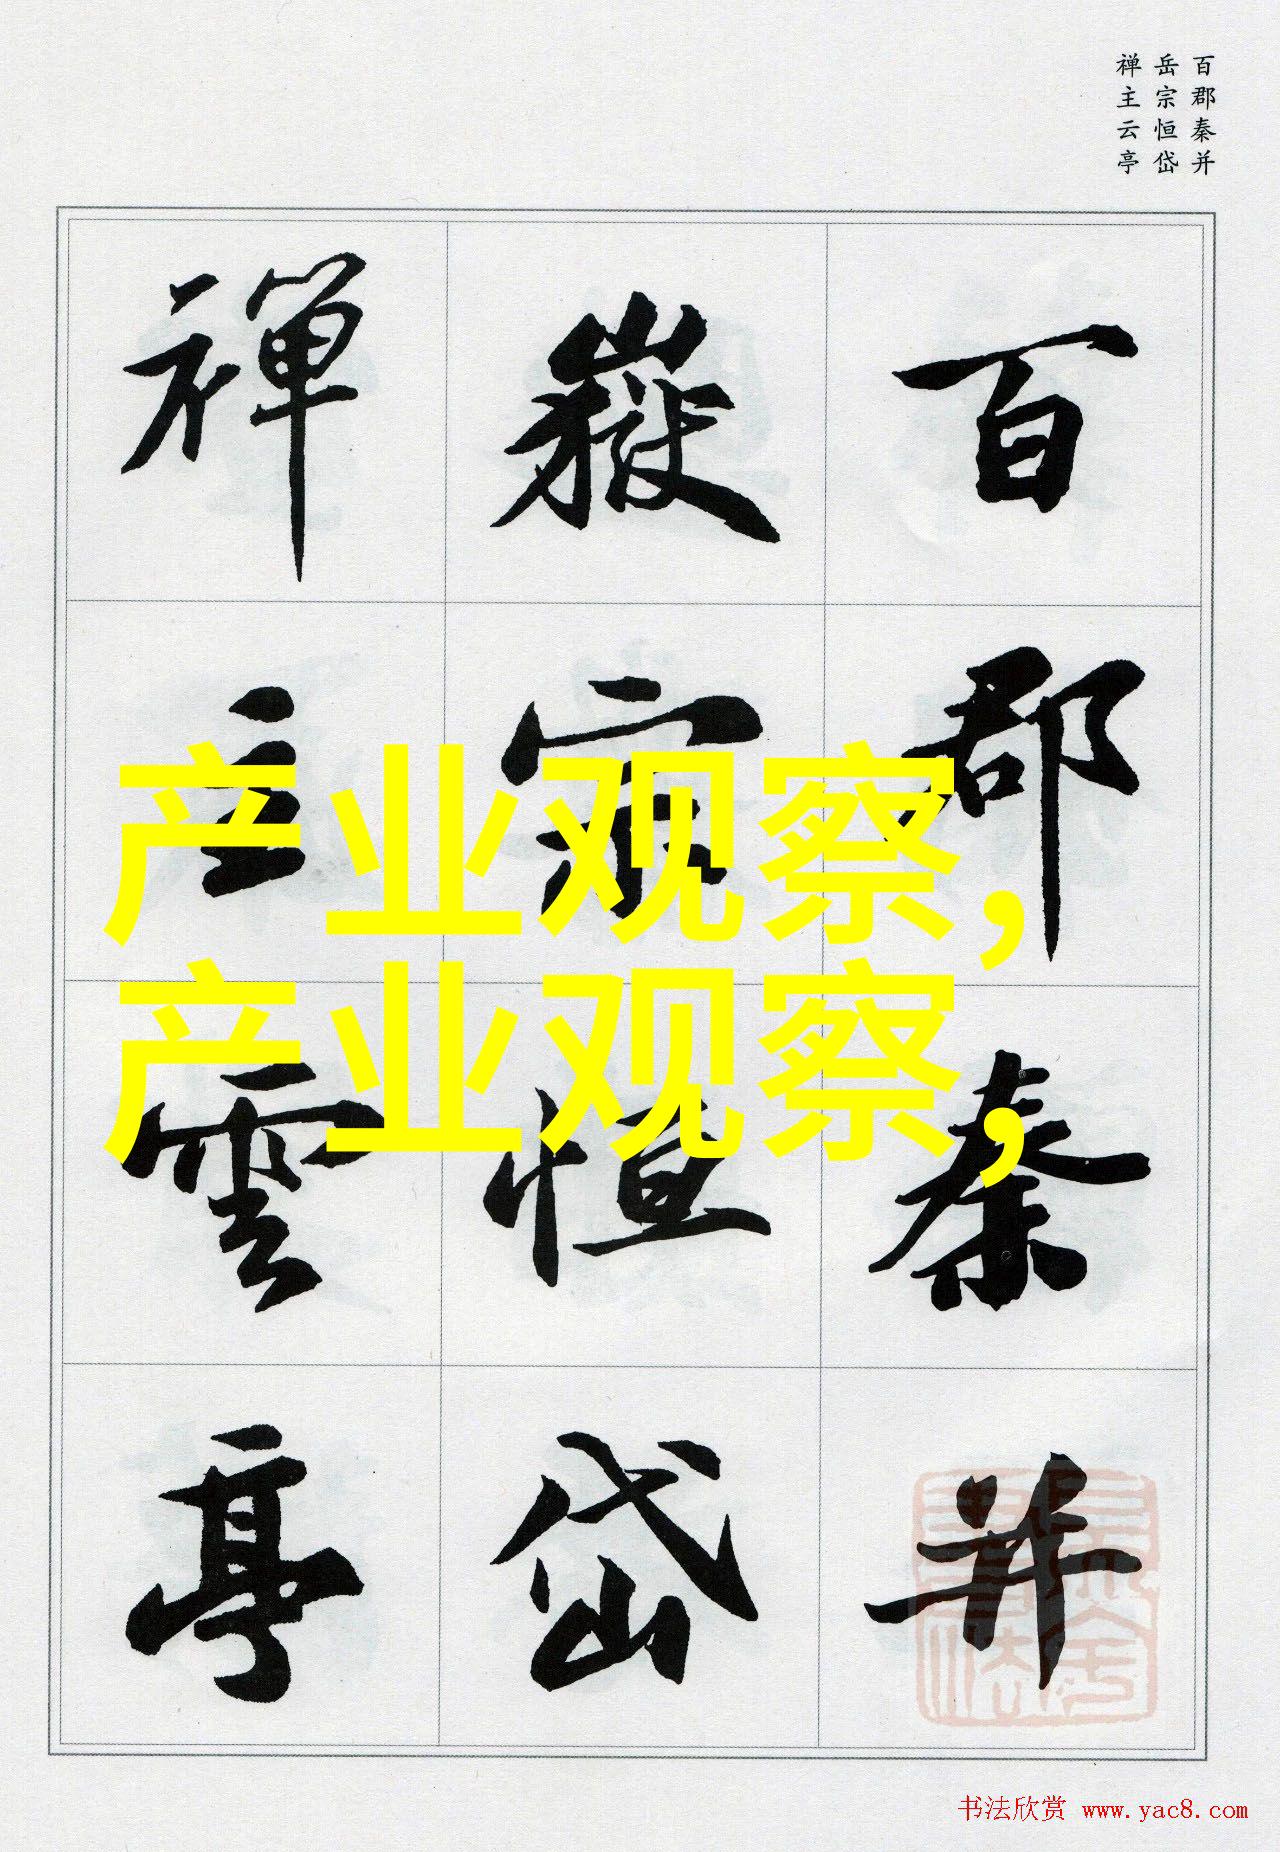 百郡秦并
岳宗恒岱
禅主云亭
百郡秦并
嶽宗恒岱
禪主雲亭
产业观察,
产业观察,
书法欣赏 www.yac8.com